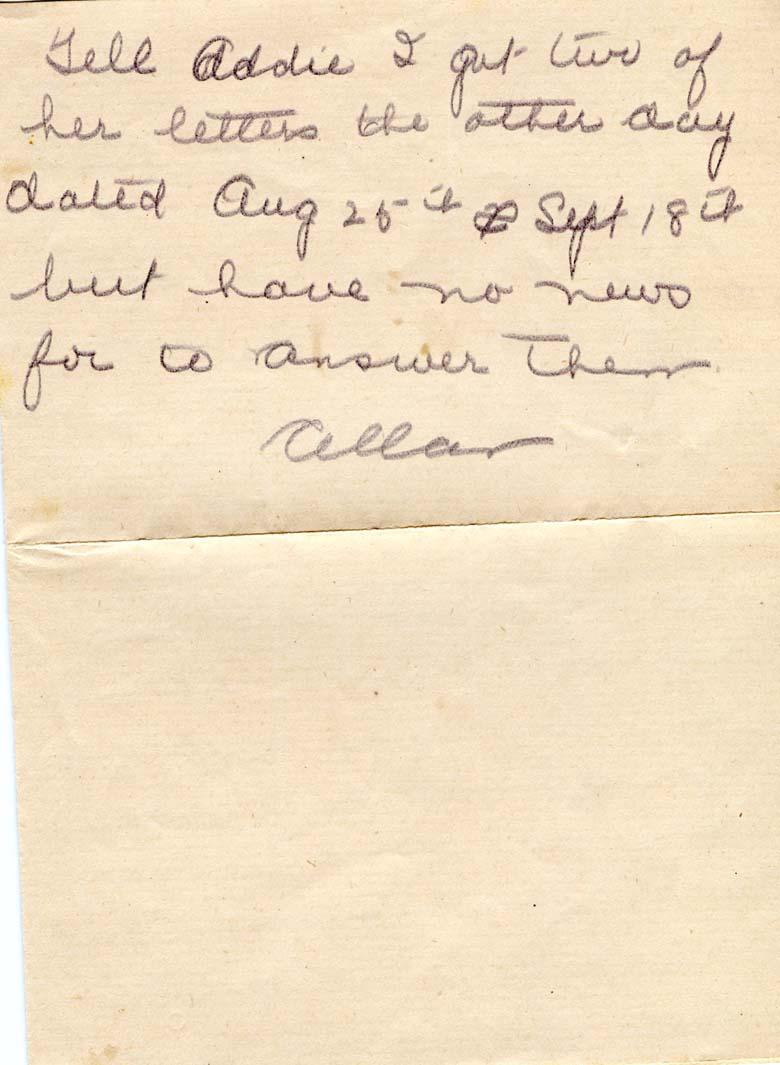 Tell Addie I got two of
her letters the other day
dated Aug 25th & Sept 18th
but have no news
for to answer them
Allan